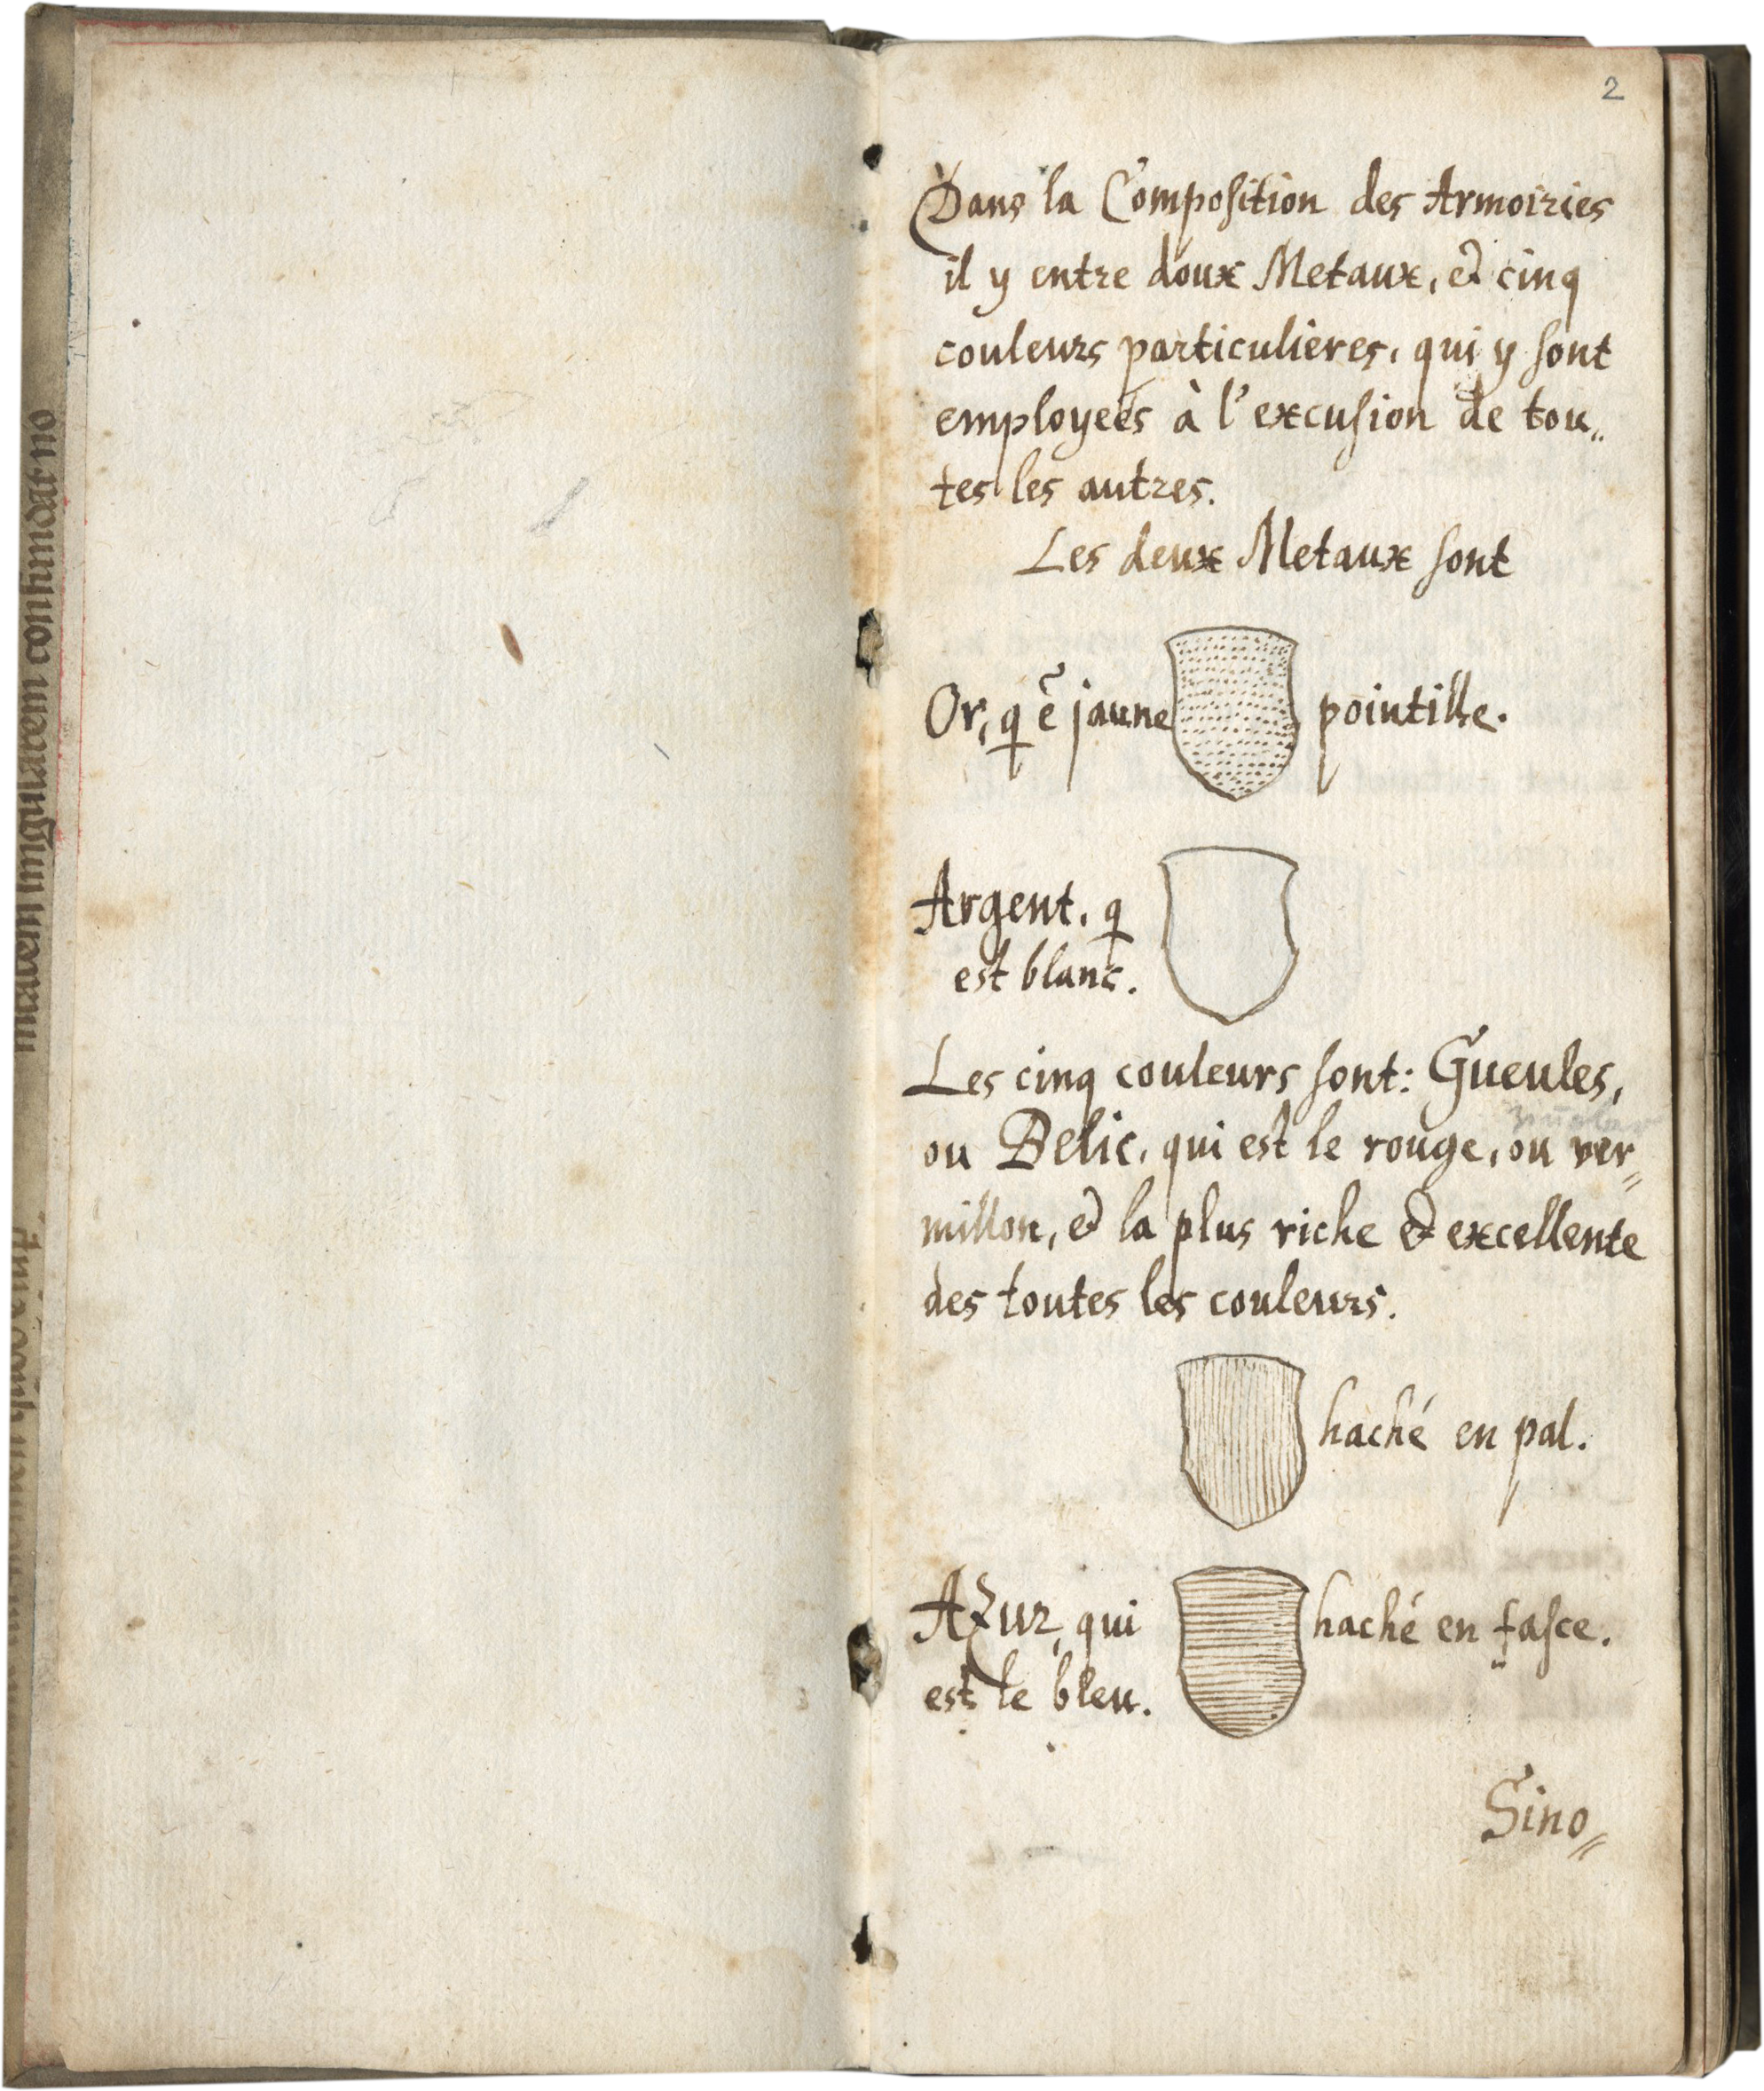 2
Dans la Composition des Armoiries
il y entre doux Metaux, et cinq
couleurs particulieres, qui y sont
employeés à l'excusion de tou„
tes les autres.
Les deux Metaux sont
Or, q ẽ jaune pointille.
Argent, q
est blanc.
Les cinq couleurs sont: Gueules,
ou Belic, qui est le rouge, ou ver„
millon, et la plus riche et excellente
des toutes les couleurs.
haché en pal.
Azur, qui haché en fasce.
est le bleu.
Sino„